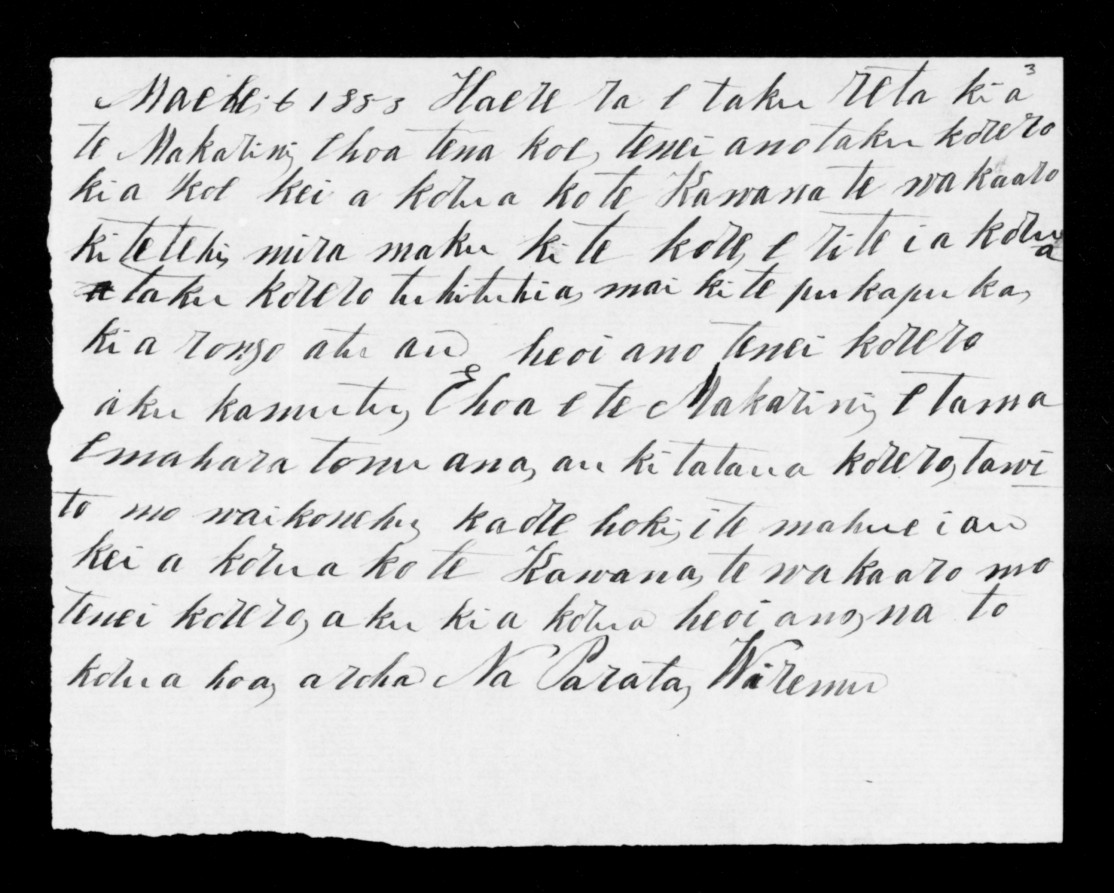 3
Maehe; 6 1858 Haere ra e taku reta ki a
te Makarini, Ehoa tena koe, tenei ano taku korero
ki a koe kei a korua ko te Kawana te wakaaro
ki tetehi, mira maku ki te kore, e rite i a korua
taku korero tuhituhia, mai ki te pukapuka,
ki a rongo atu au heoi ano tenei korero
aku kamutu, Ehoa e te Makarini, E tama
E mahara tonu ana, au ki tataua korero, tawi
to mo waikonehu, kaore hoki, i te mahue i au
kei a korua ko te Kawana, te wakaaro mo
tenei korero, aku ki a korua heoi ano, na to
korua hoa, aroha Na Parata, Wiremu